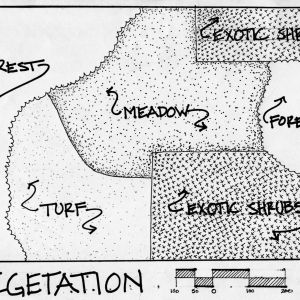 EXOTIC SHR
REST
MEADOW
FORE
TURF
EXOTIC SHRUBS
GETATION
100 50 0 100 200